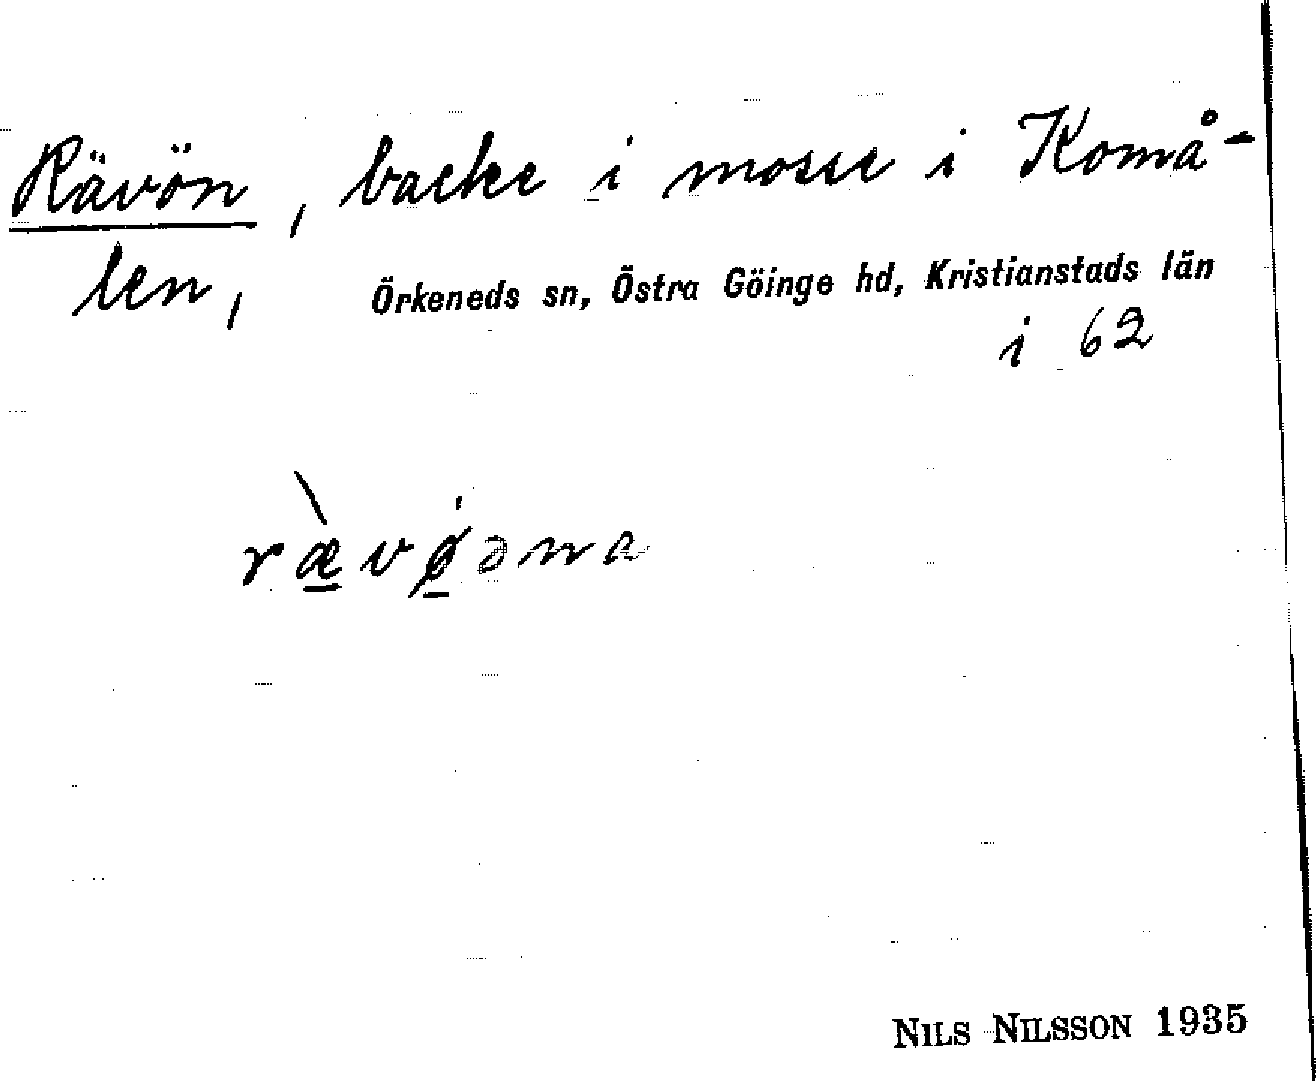 Rävön, backe i mosse i Komå-
len, Örkeneds sn, Östra Göinge hd, Kristianstads län
i 62
ræ̀vǿəna
NILS NILSSON 1935